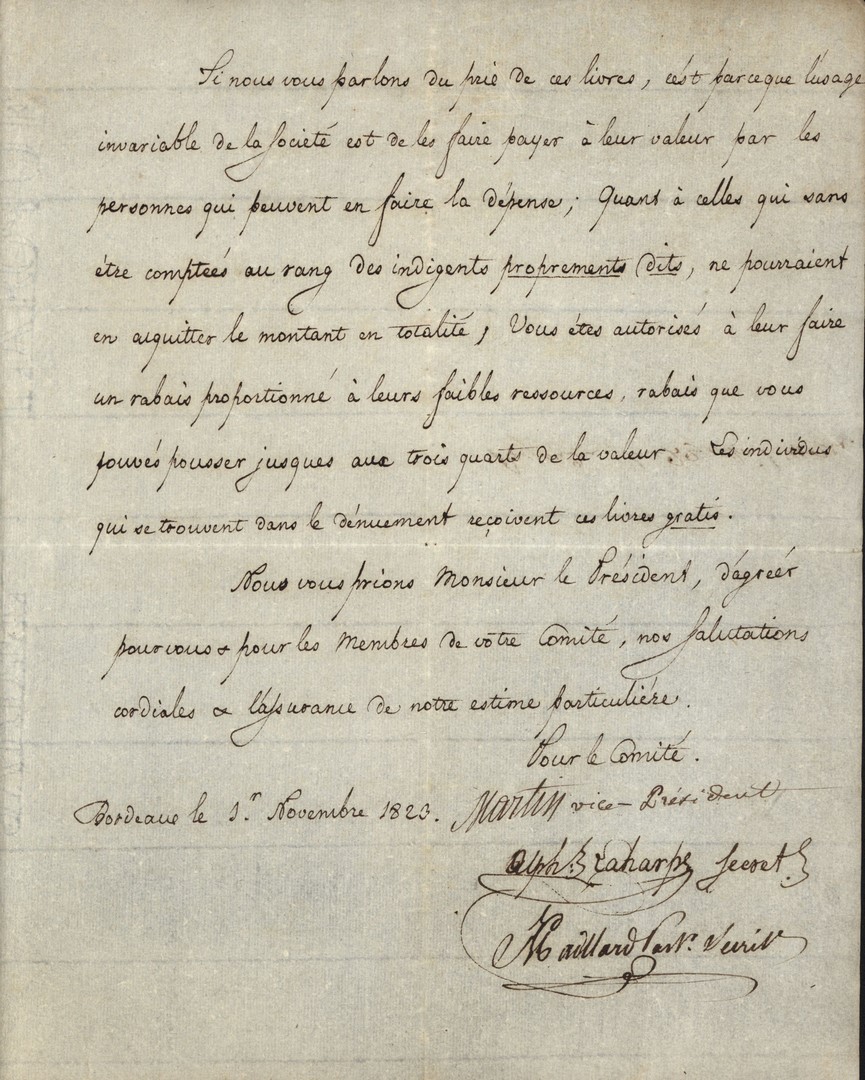 Si nous vous parlons du prié de ces livres, c'est parceque l'usage
invariable de la Société est de les faire payer à leur valeur par les
personnes qui peuvent en faire la dépense; Quant à celles qui sans
être comptées au rang des indigents proprements dits, ne pourraient
en acquitter le montant en totalité, Vous êtes autorisés à leur faire
un rabais proportionné à leurs faibles ressources, rabais que vous
pouvés pousser jusques aux trois quarts de la valeur. Les individus
qui se trouvent dans le dénuement reçoivent ces livres gratis.
Nous vous prions Monsieur le Président, d'agréér
pour vous & pour les Membres de votre Comité, nos Salutations
cordiales & l'assurance de notre estime particulière.
Pour le Comité.
Bordeaux le 1.r Novembre 1823. Martin vice-Président
Alph. Laharpe Secret.
Maillard